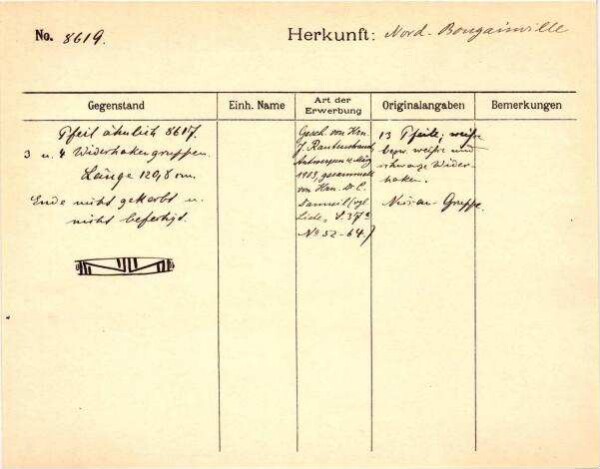 No. 8619.
Herkunft: Nord-Bougainville
Gegenstand
Einh. Name
Art der
Erwerbung
Originalangaben
Bemerkungen
Pfeil ähnlich 8617.
3 u. 4 Widerhakengruppen.
Länge 129,8 cm.
Ende nicht gekerbt u.
nicht befestigt.
Gesch. von Hrn.
J. Rautenstrauch,
Antwerpen, März
1913, gesammelt
von Hrn.
Liste, S. 37
No 52-64.)
13 Pfeile; weiße
bezw. weiße und
schwarze Wider-
haken.
Nissan-Gruppe.